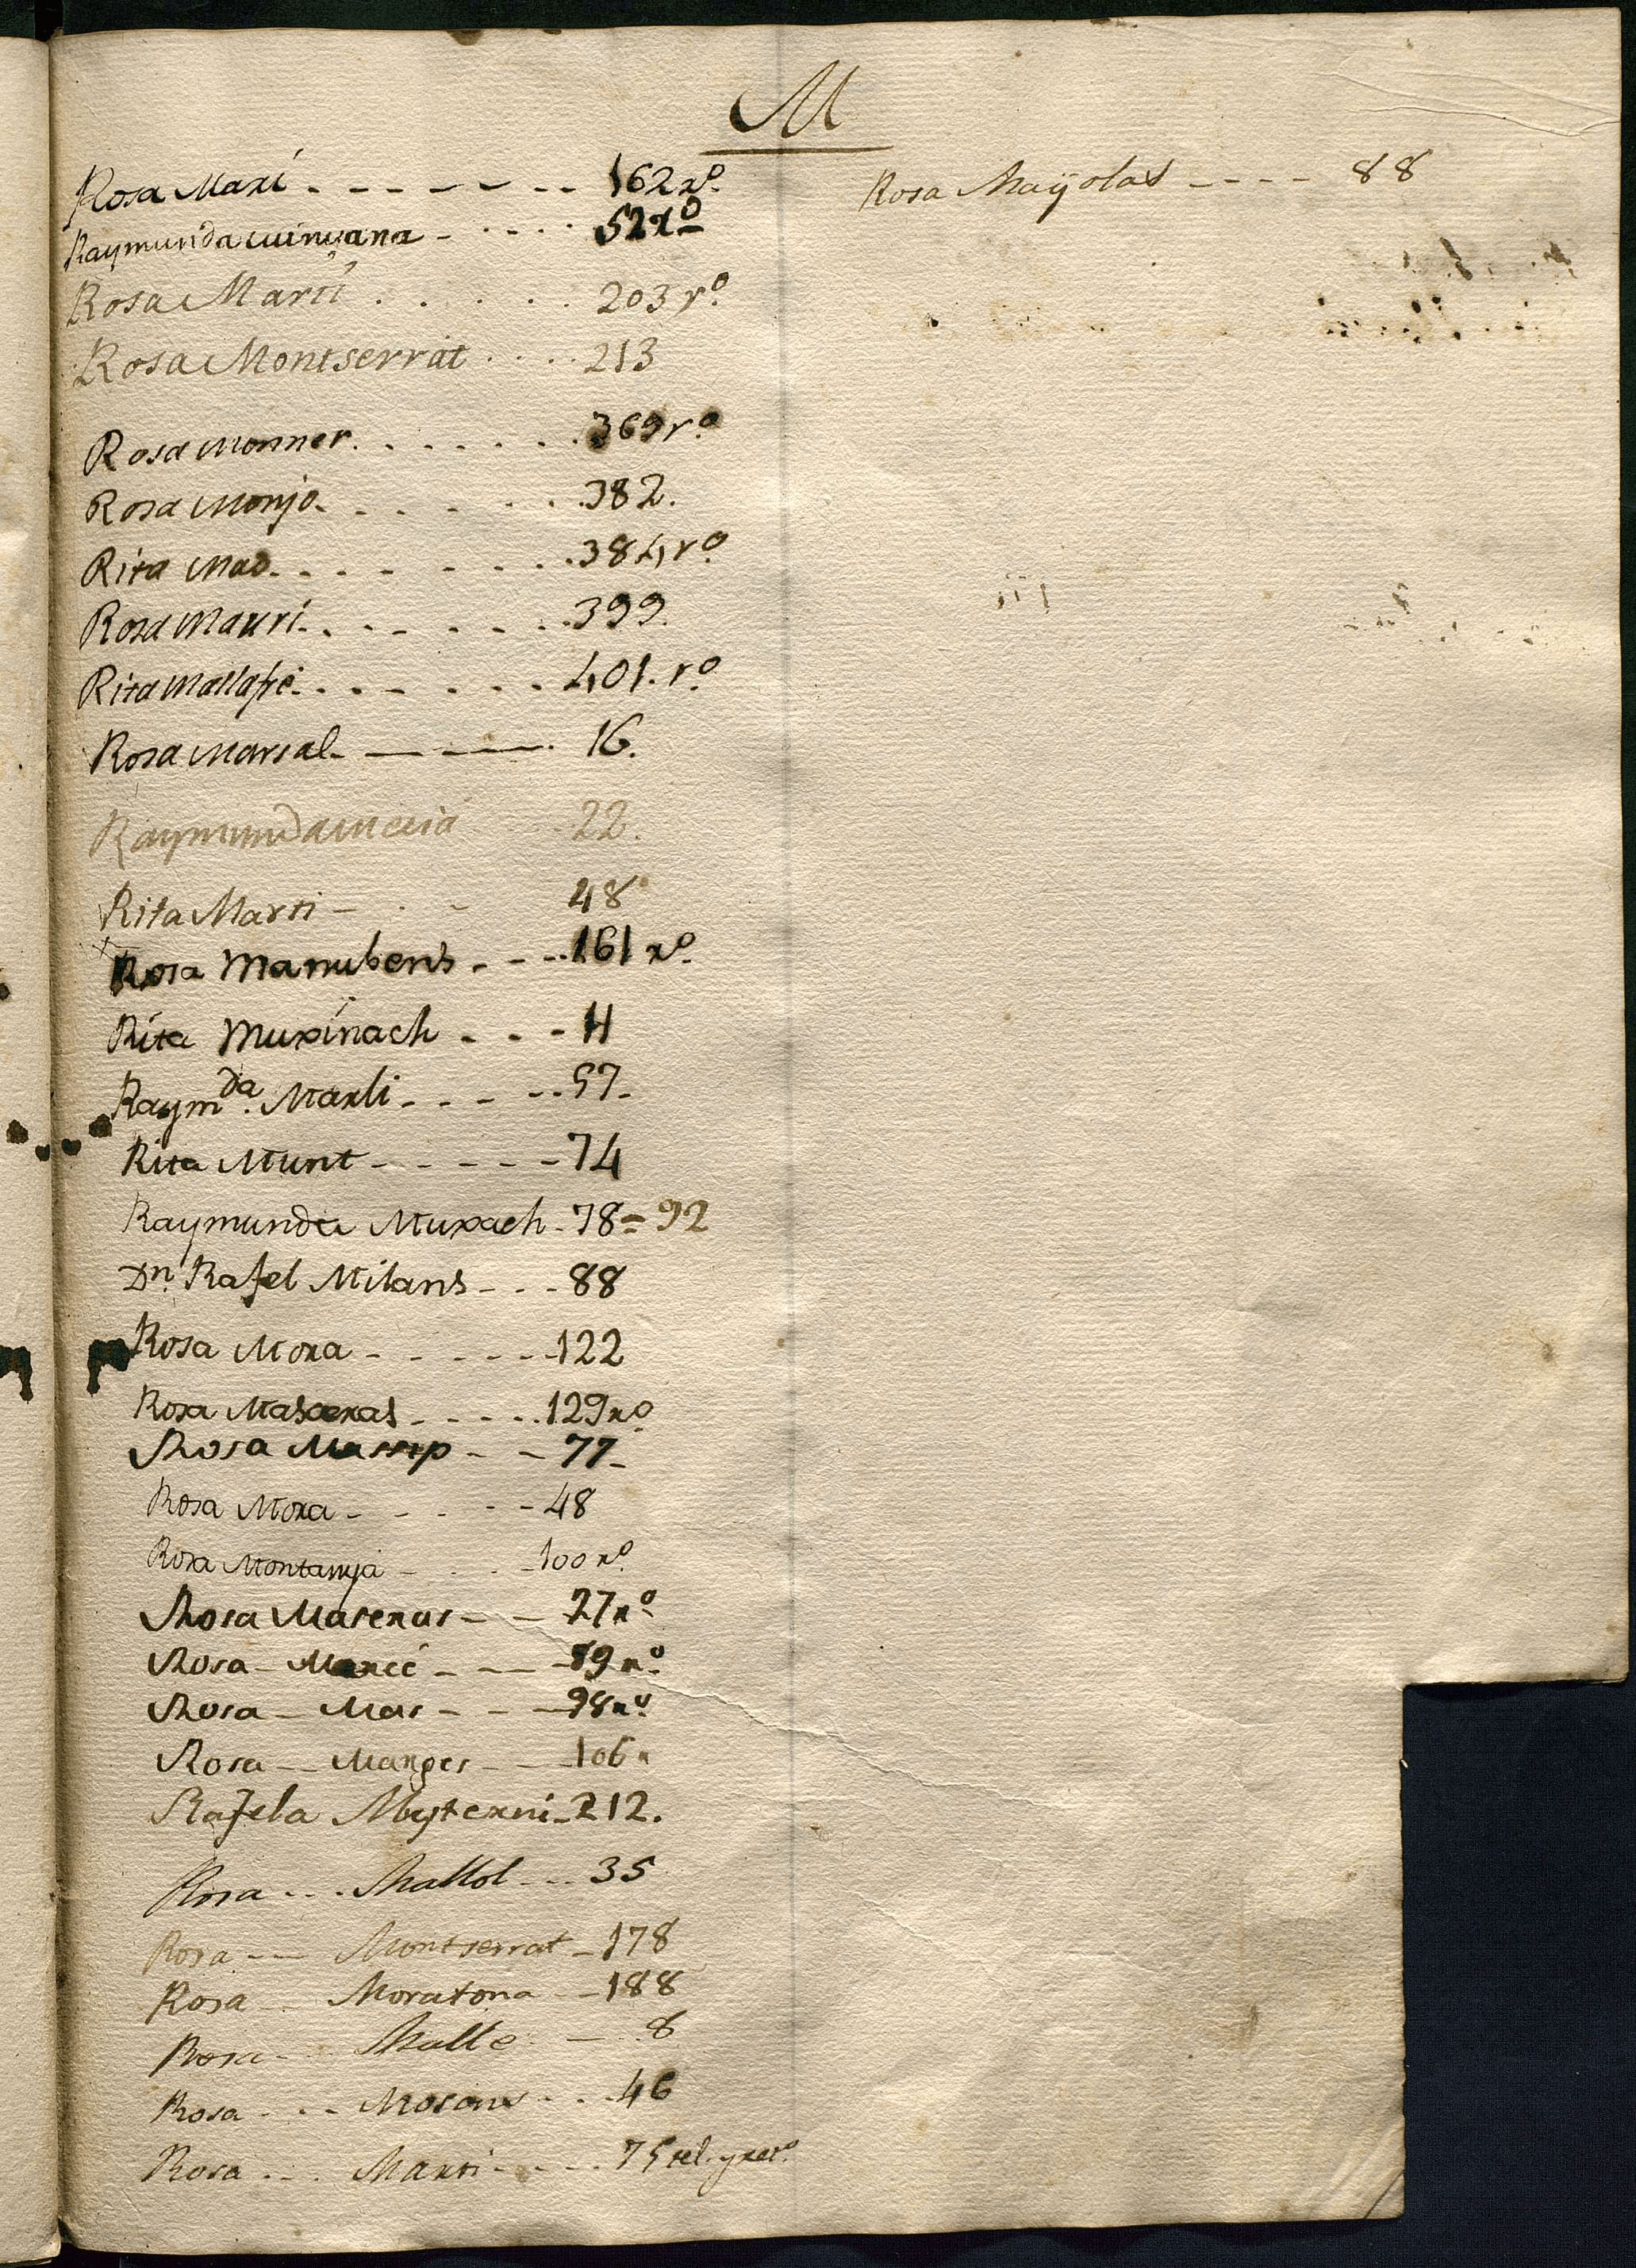 M
Rosa Marí - - - - - - - 162 rº.
Raymunda Minvana - - - - - 52 rº
Rosa Martí . . . . . 203 rº.
Rosa Montserrat . . . . 213
Rosa Monner . . . . . . . 369 rº
Rosa Monjo . . . . . . . 382.
Rita Mas . . . . . . . . 384 rº
Rosa Mauri . . . . . . . . 399.
Rita Mallafré . . . . . . . 401. rº
Rosa Marsal - — — — . 16.
Raymunda 22.
Rita Marti - . - 48
Rosa Manubens - - - 161 rº
Rita Muxinach - - - 11
Raymda. Marli - - - - - 57-
Rita Munt - - - - - - 74
Raymunda Muxach - 78 = 92
Dn. Rafel Milans - - - 88
Rosa Mora - - - - - - 122
Rosa Masderas - - - - - 129 rº
Rosa Massip - - - 77-
Rosa Mora - - - - - 48
Rosa Montanyà - - - - 100 rº
Rosa Maseras - - 27 rº
Rosa - Marcé - - — 89 rº
Rosa - Mas - - — 98 rº
Rosa — Marges - — 106 r
Rafela - 212.
Rosa . . . Mallol - - - 35
Rosa - — Montserrat - 178
Rosa - - Moratona - - 188
Rosa - - Malle - — 8
Rosa - - - - - 46
Rosa . . . Marti - - - - 75
Rosa Mayolas - - - - 88